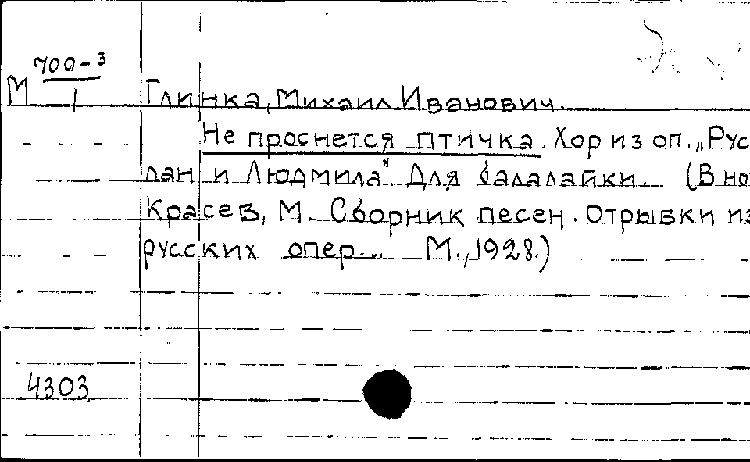 М 700-3
1
Глинка, Михаил Иванович.
Не проснется птичка. Хор из оп. „Рус
лан и Людмила" Для балалайки. (В но
Красев, М. Сборник песен. Отрывки из
русских опер... М., 1928.)
4303